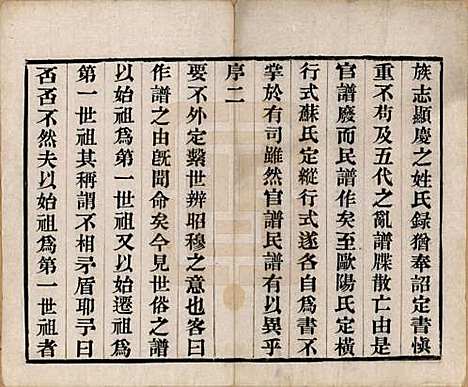 族志顯慶之姓氏録猶奉詔定書慎
重不苟及五代之亂譜牒散亡由是
官譜廢而民譜作矣至歐陽氏定橫
行式蘇氏定縱行式遂各自爲書不
掌於有司雖然官譜民譜有以異乎
序二
要不外定繫世辨昭穆之意也客曰
作譜之由旣聞命矣今見世俗之譜
以始祖爲第一世祖又以始遷祖爲
第一世祖其稱謂不相矛盾耶予曰
否否不然夫以始祖爲第一世祖者